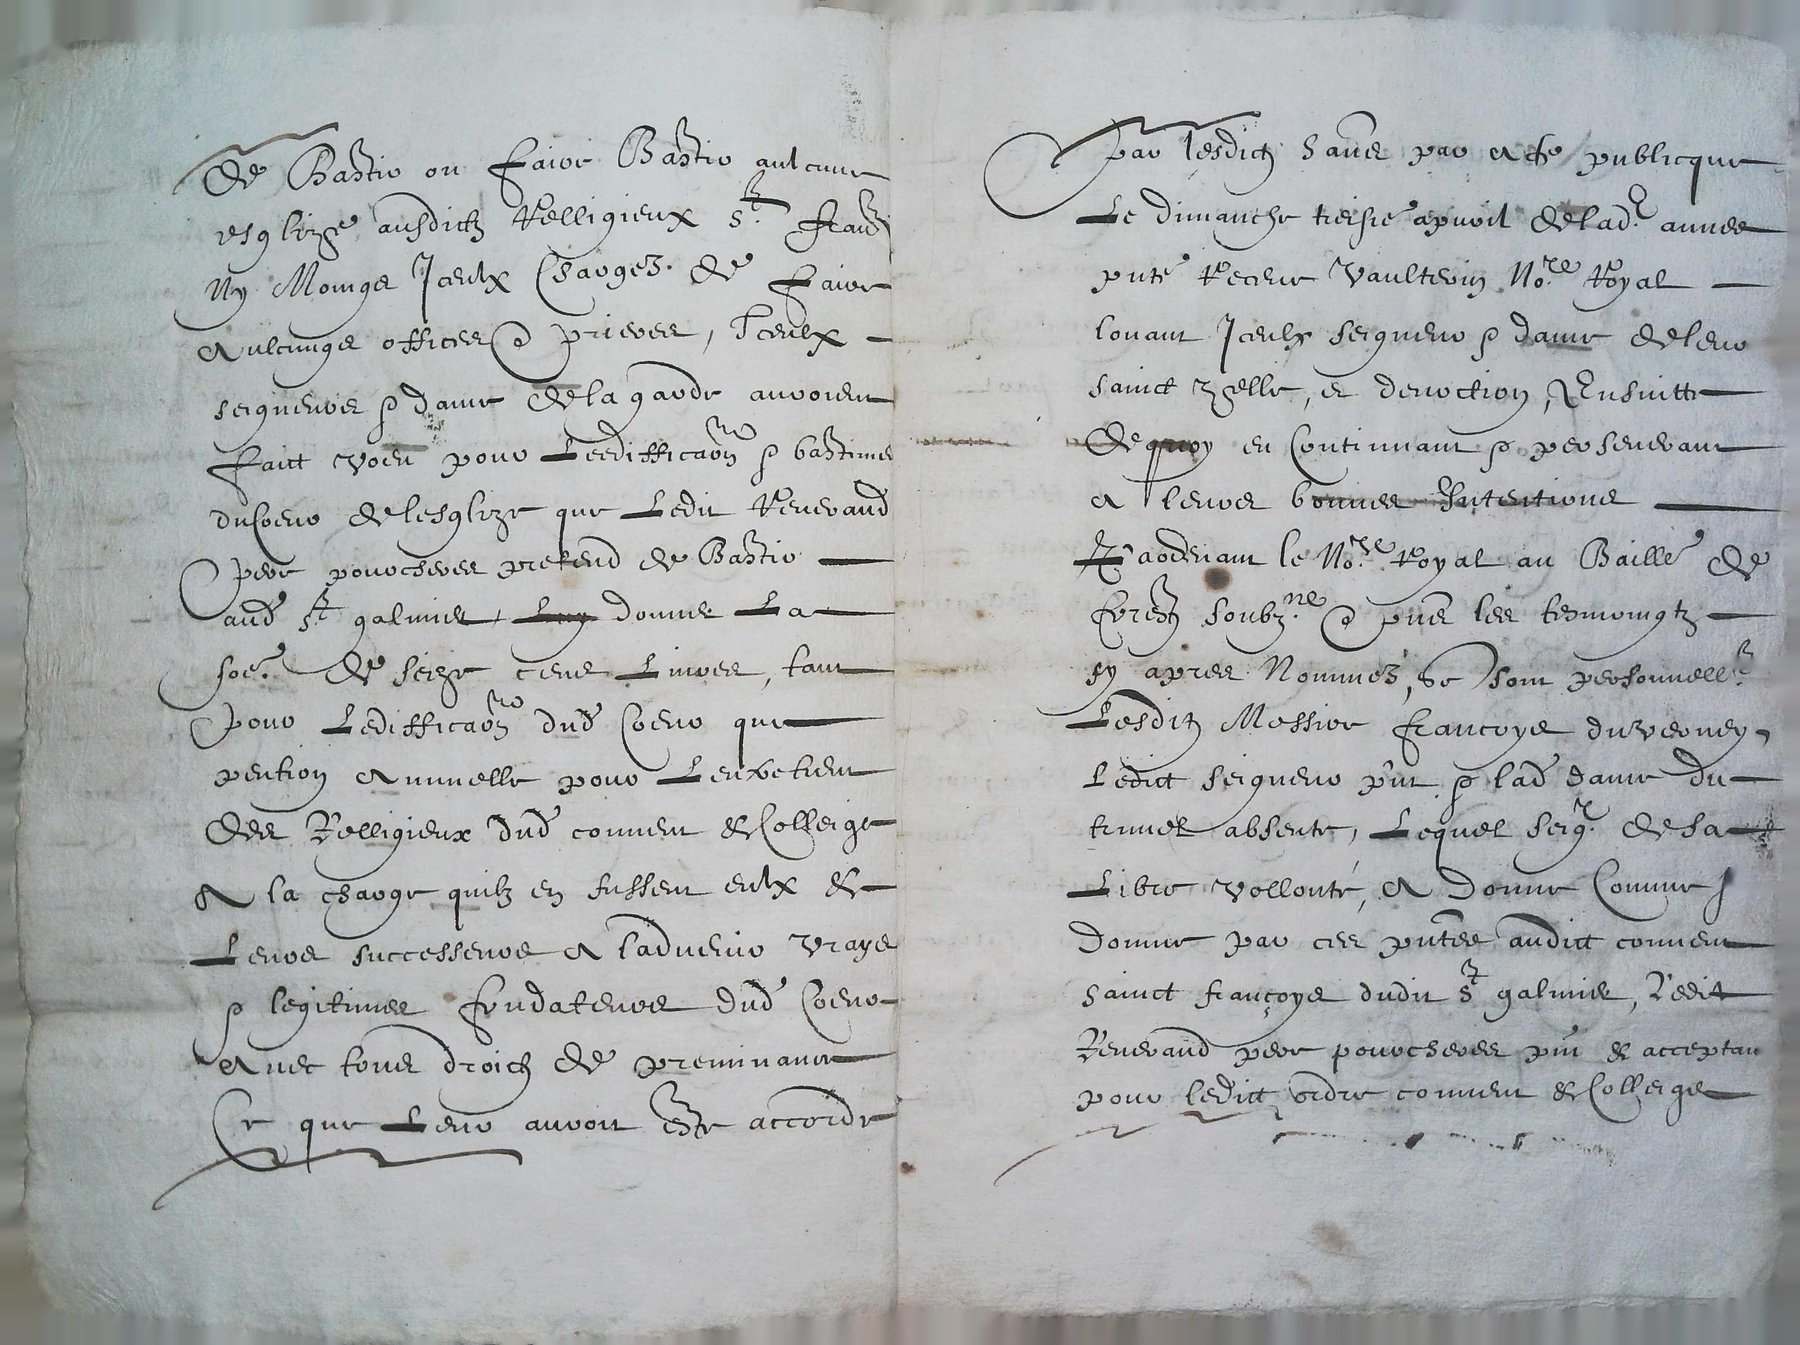 de Bastir ou faire Bastir aulcune
esglize ausdictz Relligieux st. franz
Ny Moings Iceulx Charges de faire
Aulcungs offices & prieres, Iceulx
seigneurs & dame de la garde auroient
faict voeu pour Leedifficaõn & bastimẽ
du Coeur de lesglize que Ledit Reuerand
pere pourcheres pretend de Bastir
aud st galmier, Luy donner La
soe. de seize cens Liures, tant
pour Ledifficaõn dud Coeur que
pention Annuelle pour Lentretient
des Relligieux dud conuent & Colleige
A la charge quilz en fussent eulx &
Leurs successeurs A laduenir vrays
& legitimes fondateurs dud Coeur
Auec tous droictz de preminance
Ce que Leur auroit este accordé
par lesdictz Sauers par acte publicque
Le dimanche treisie apuril de lad. annee
pnte Receue Vaulterin No.re Royal
louant Iceulx seigneur & dame de leur
sainct zelle, et deuoction, Ensuitte
de quoy en Continuant & perseuerant
A leurs bonnes Intentions
Pardeuant le No.re Royal au Baillé de
forestz soubz.ne & pns les tesmoingtz
cy apres Nommes, Se sont personnelle.t
Lesditz Messire francoys du verney,
Ledict seigneur p̃nt & lad dame du
tunnel absente, Lequel seig.r de sa
Libre vollonté, A donne Comme
donne par ces pntes audict conuent
sainct françoys dudit st galmier, Ledit
Reuerand pere pourcheres pnt & acceptan
pour ledict ordre conuent & Colleige